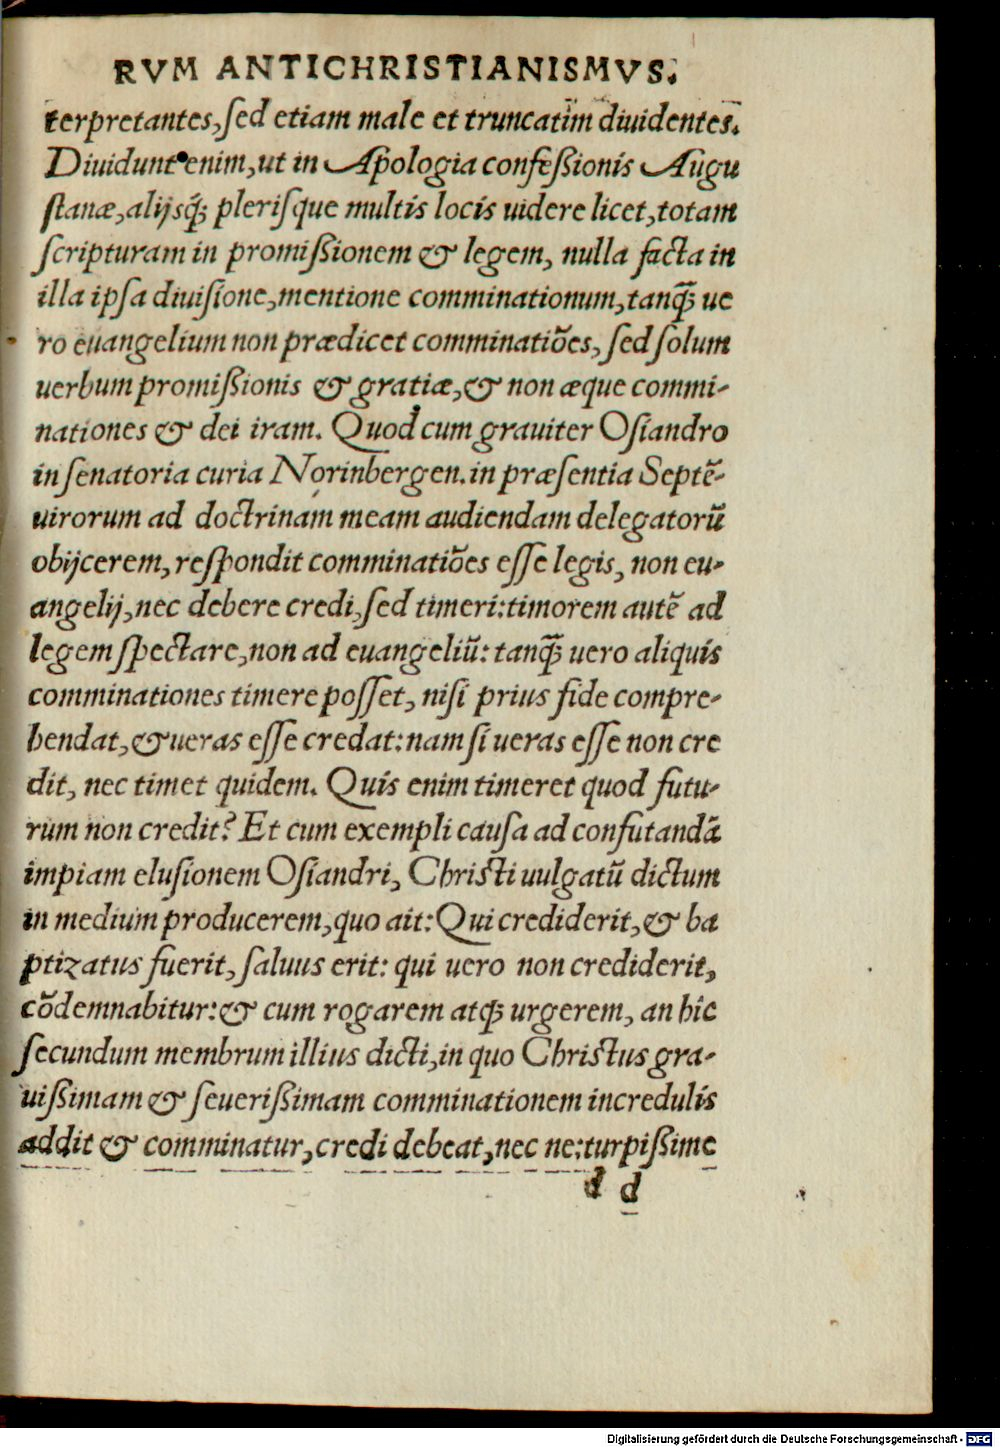 RVM ANTICHRISTIANISMVS.
terpretantes, sed etiam male et truncatim diuidentes.
Diuidunt enim, ut in Apologia confeßionis Augu
stanæ, alijsq́ꝫ plerisque multis locis uidere licet, totam
scripturam in promißionem & legem, nulla facta in
illa ipsa diuisione, mentione comminationum, tanq̃ꝫ ue
ro euangelium non prædicet comminatiões, sed solum
uerbum promißionis & gratiæ, & non æque commi-
nationes & dei iram. Quod cum grauiter Osiandro
in senatoria curia Norinbergen. in præsentia Septẽ-
uirorum ad doctrinam meam audiendam delegatorũ
obijcerem, respondit comminatiões esse legis, non eu-
angelij, nec debere credi, sed timeri: timorem autẽ ad
legem spectare, non ad euangeliũ: tanq̃ꝫ uero aliquis
comminationes timere posset, nisi prius fide compre-
hendat, & ueras esse credat: nam si ueras esse non cre
dit, nec timet quidem. Quis enim timeret quod futu-
rum non credit? Et cum exempli causa ad confutandã
impiam elusionem Osiandri, Christi uulgatũ dictum
in medium producerem, quo ait: Qui crediderit, & ba
ptizatus fuerit, saluus erit: qui uero non crediderit,
cõdemnabitur: & cum rogarem atqꝫ urgerem, an hic
secundum membrum illius dicti, in quo Christus gra-
uißimam & seuerißimam comminationem incredulis
addit & comminatur, credi debeat, nec ne: turpißime
d d
Digitalisierung gefördert durch die Deutsche Forschungsgemeinschaft - DFG